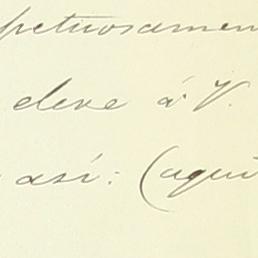 petuosamen
eleve á V.
así: (aqui